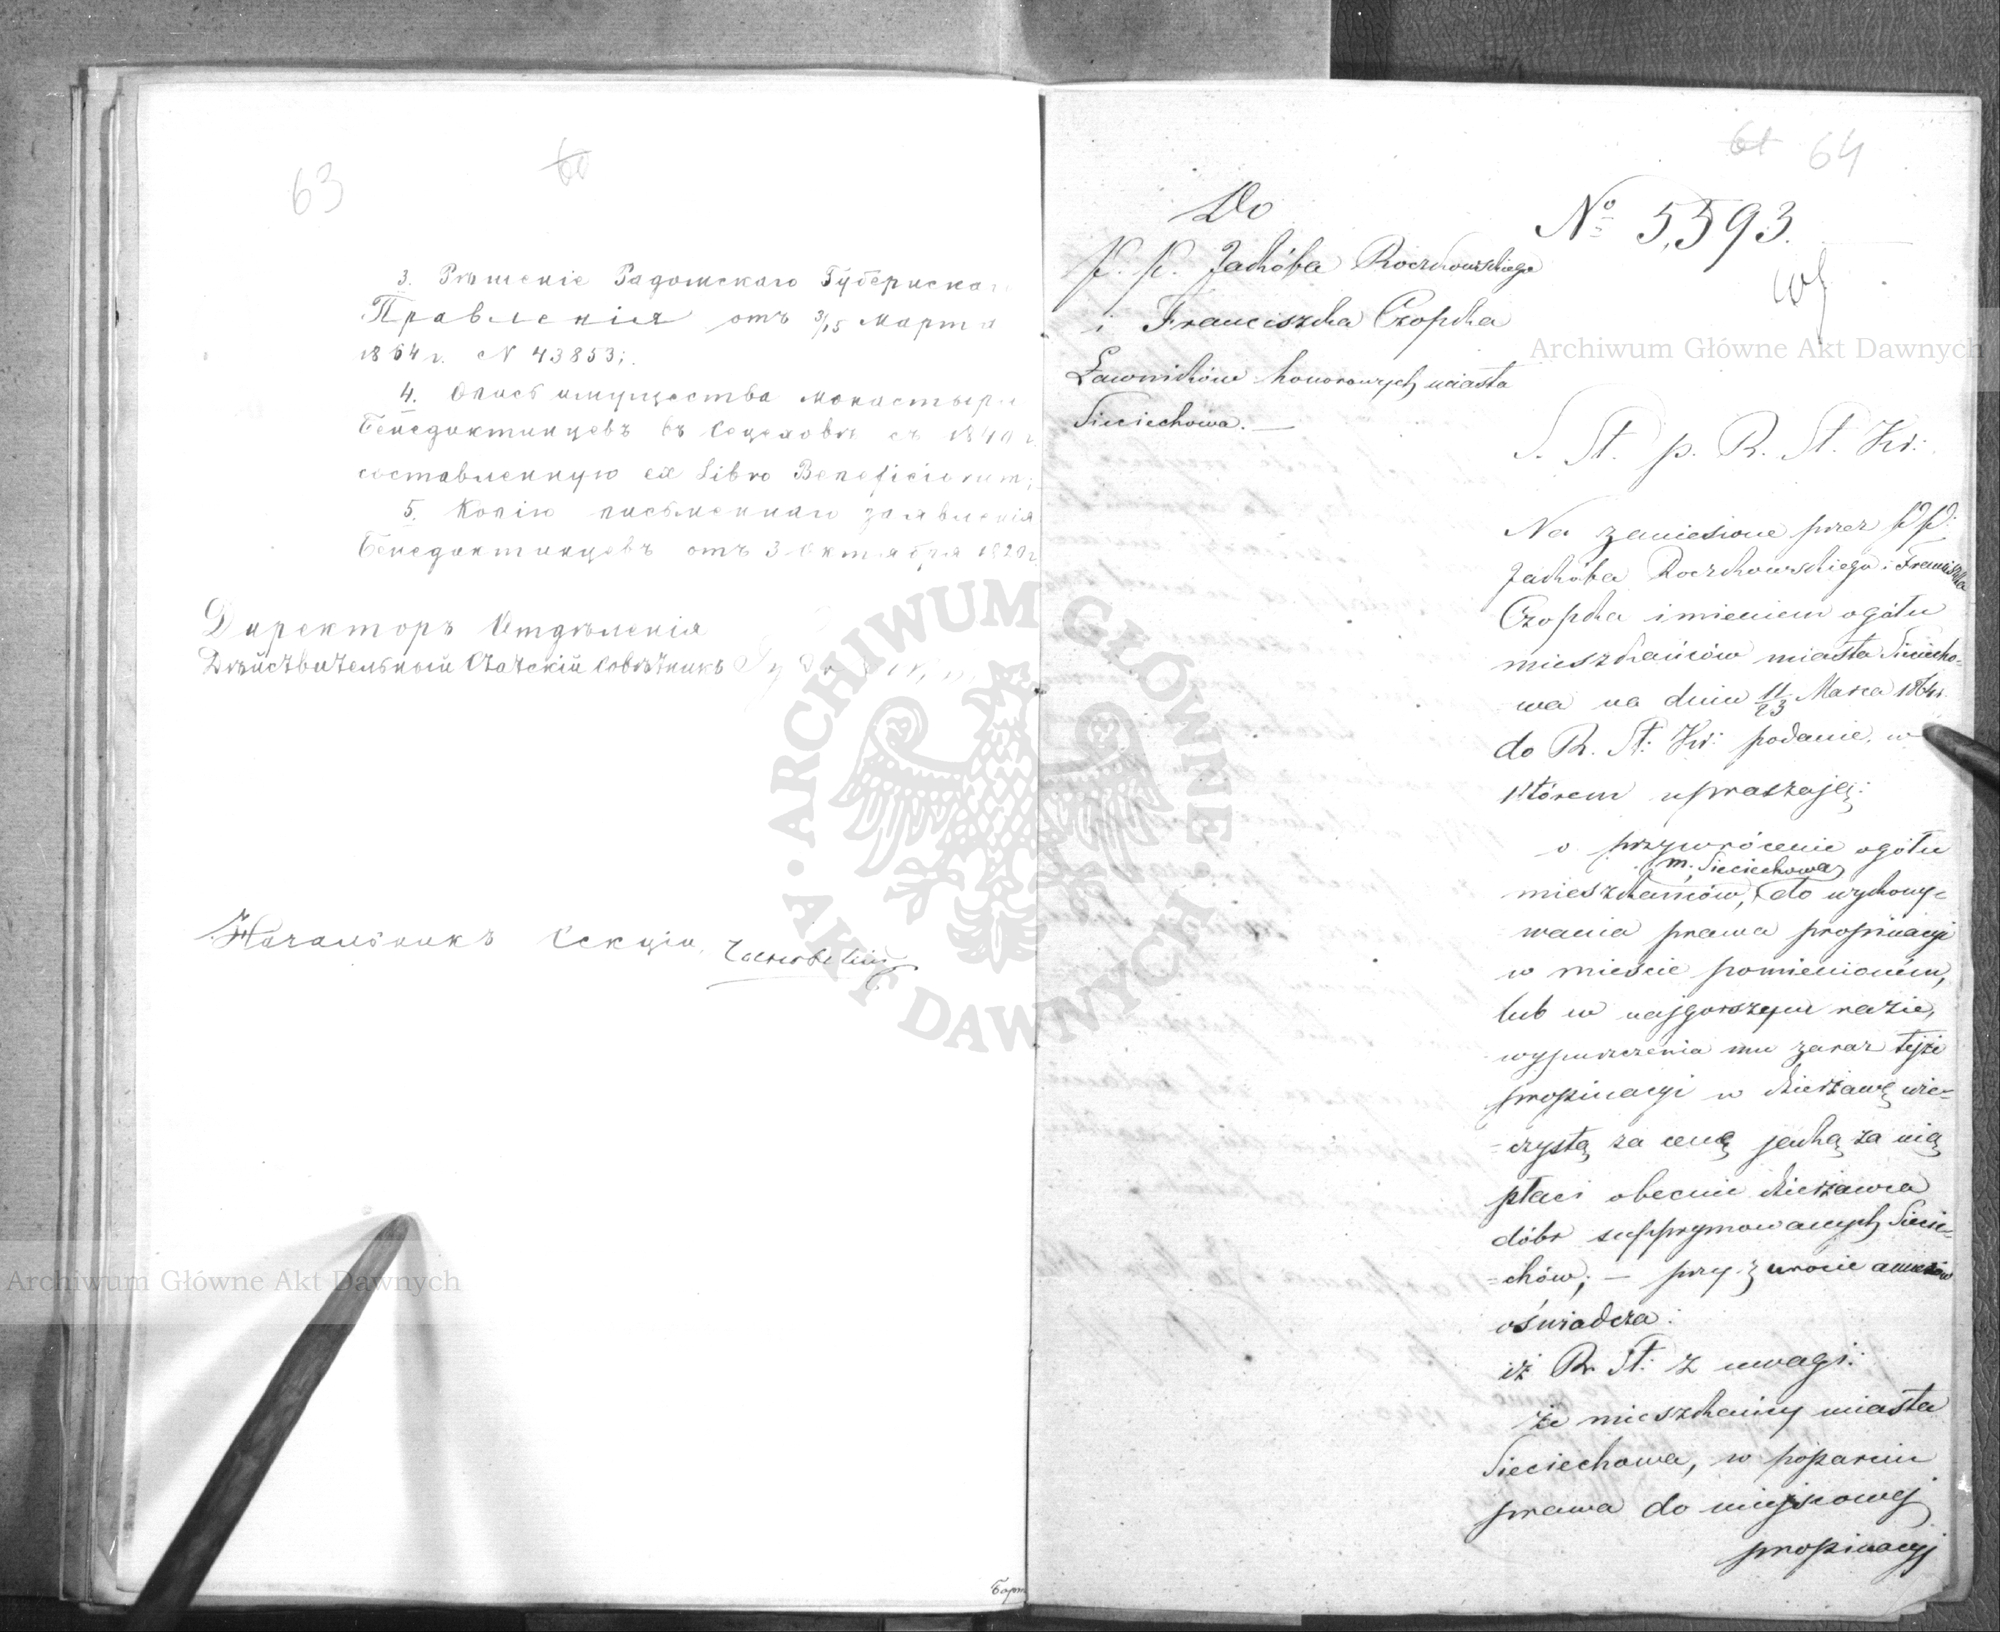 63
60
3. Рѣшеніе Радомскаго Губернска
Правленія отъ 3/15 Марта
1864 г. N 43853;
4. Опись имущества монастыря
Бенедиктинцевъ въ Сецеховѣ съ 1840 г
составленную ex Libro Beneficiorum;
5. Копію письменнаго заявленія
Бенедиктинцевъ отъ 3 Октября
Директоръ Отдѣленія
Дѣйствительный Статскій Совѣтникъ
Начальникъ Секціи
61 64
Do
P. P. Jakóba Roczkowskiego
i Franciszka Czopka
Ławników honorowych miasta
Sieciechowa. —
Nº 5,593.
S. St. p. R. St. Kr:
Na zaniesione przez PP:
Jakóba Roczkowskiego i Franciszka
Czopka imieniem ogółu
mieszkańców miasta Sieciecho-
wa na dniu 11/23 Marca 1864 r.
do R. St: Kr: podanie, w
którem upraszają:
o przywrócenie ogółu
m. Sieciechowa
mieszkańców, do wykony-
wania prawa propinacyi
w mieście pomienioném,
lub w najgorszym razie,
wypuszczenia mu zaraz tejże
propinacyi w dzierżawę wie-
czystą za cenę jaką za nią
płaci obecnie dzierżawca
dóbr supprymowanych Siecie-
chów; — przy zwrocie annexów
oświadcza:
iż R. St: z uwagi:
że mieszkańcy miasta
Sieciechowa, w poparciu
prawa do miejscowej
propinacyi
Archiwum Główne Akt Dawnych
Archiwum Główne Akt Dawnych
ARCHIWUM GŁÓWNE · AKT DAWNYCH ·